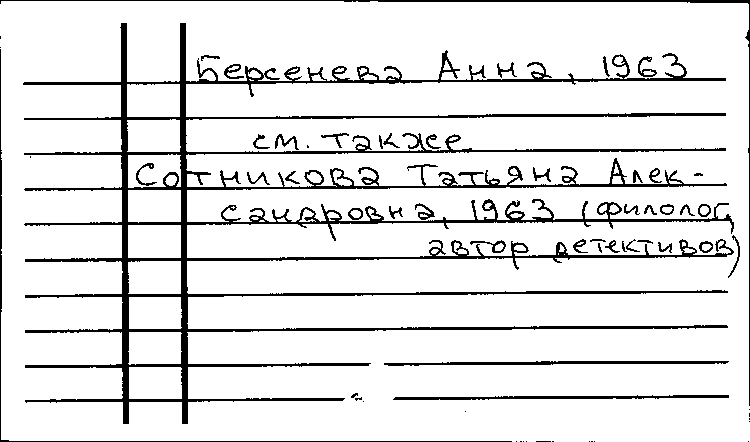 Берсенева Анна, 1963
см. также
Сотникова Татьяна Алек-
сандровна, 1963 (филолог,
автор детективов)